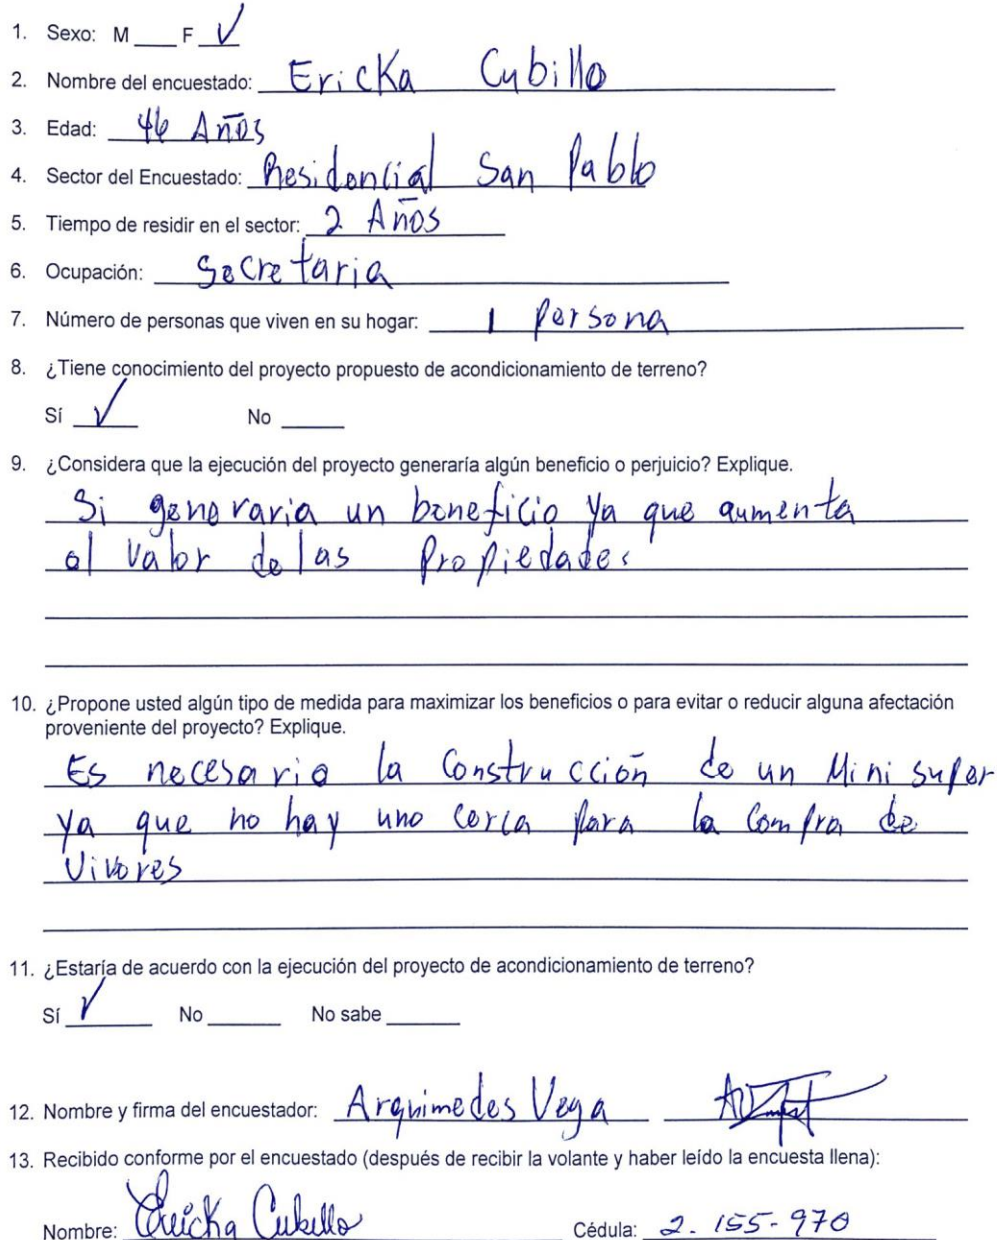 1. Sexo: M ____ F √
2. Nombre del encuestado: Ericka Cubillo
3. Edad: 46 Años
4. Sector del Encuestado: Residencial San Pablo
5. Tiempo de residir en el sector: 2 Años
6. Ocupación: Secretaria
7. Número de personas que viven en su hogar: 1 persona
8. ¿Tiene conocimiento del proyecto propuesto de acondicionamiento de terreno?
Sí √ No ____
9. ¿Considera que la ejecución del proyecto generaría algún beneficio o perjuicio? Explique.
Si generaria un beneficio ya que aumenta
el valor de las Propiedades
10. ¿Propone usted algún tipo de medida para maximizar los beneficios o para evitar o reducir alguna afectación
proveniente del proyecto? Explique.
Es necesario la Construcción de un Mini super
ya que no hay uno cerca para la Compra de
Viveres
11. ¿Estaría de acuerdo con la ejecución del proyecto de acondicionamiento de terreno?
Sí √ No ____ No sabe ____
12. Nombre y firma del encuestador: Arquimedes Vega
13. Recibido conforme por el encuestado (después de recibir la volante y haber leído la encuesta llena):
Nombre: Ericka Cubillo Cédula: 2-155-970